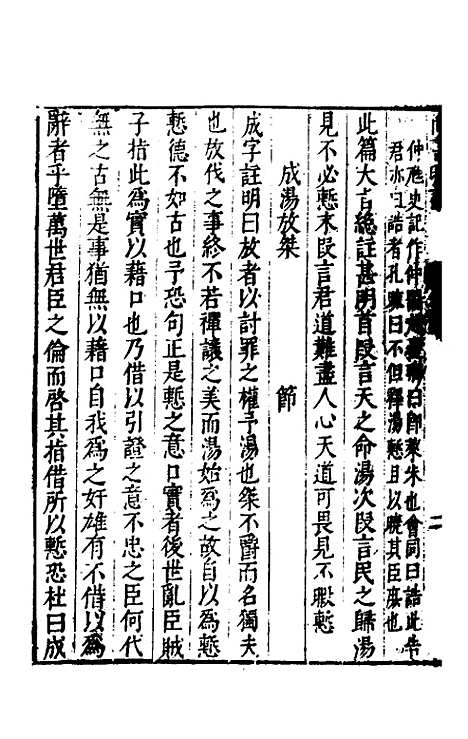 仲虺史記作仲䖝曰即萊朱也會同曰誥此告
君亦曰誥者孔氏曰不但釋湯慙且以曉其臣庶也
此篇大言總註甚明首段言天之命湯次段言民之歸湯
見不必慙末段言君道難盡人心天道可畏見不暇慙
成湯放桀　節
成字註明曰放者以討罪之權予湯也桀不爵而名獨夫
也放伐之事終不若禪讓之美而湯始為之故自以為慙
慙德不如古也予恐句正是慙之意口實者後世亂臣賊
子指此為實以藉口也乃借以引證之意不忠之臣何代
無之古無是事猶無以藉口自我為之奸雄有不借以為
辭者乎墮萬世君臣之倫而啓其指借所以慙恐杜曰成